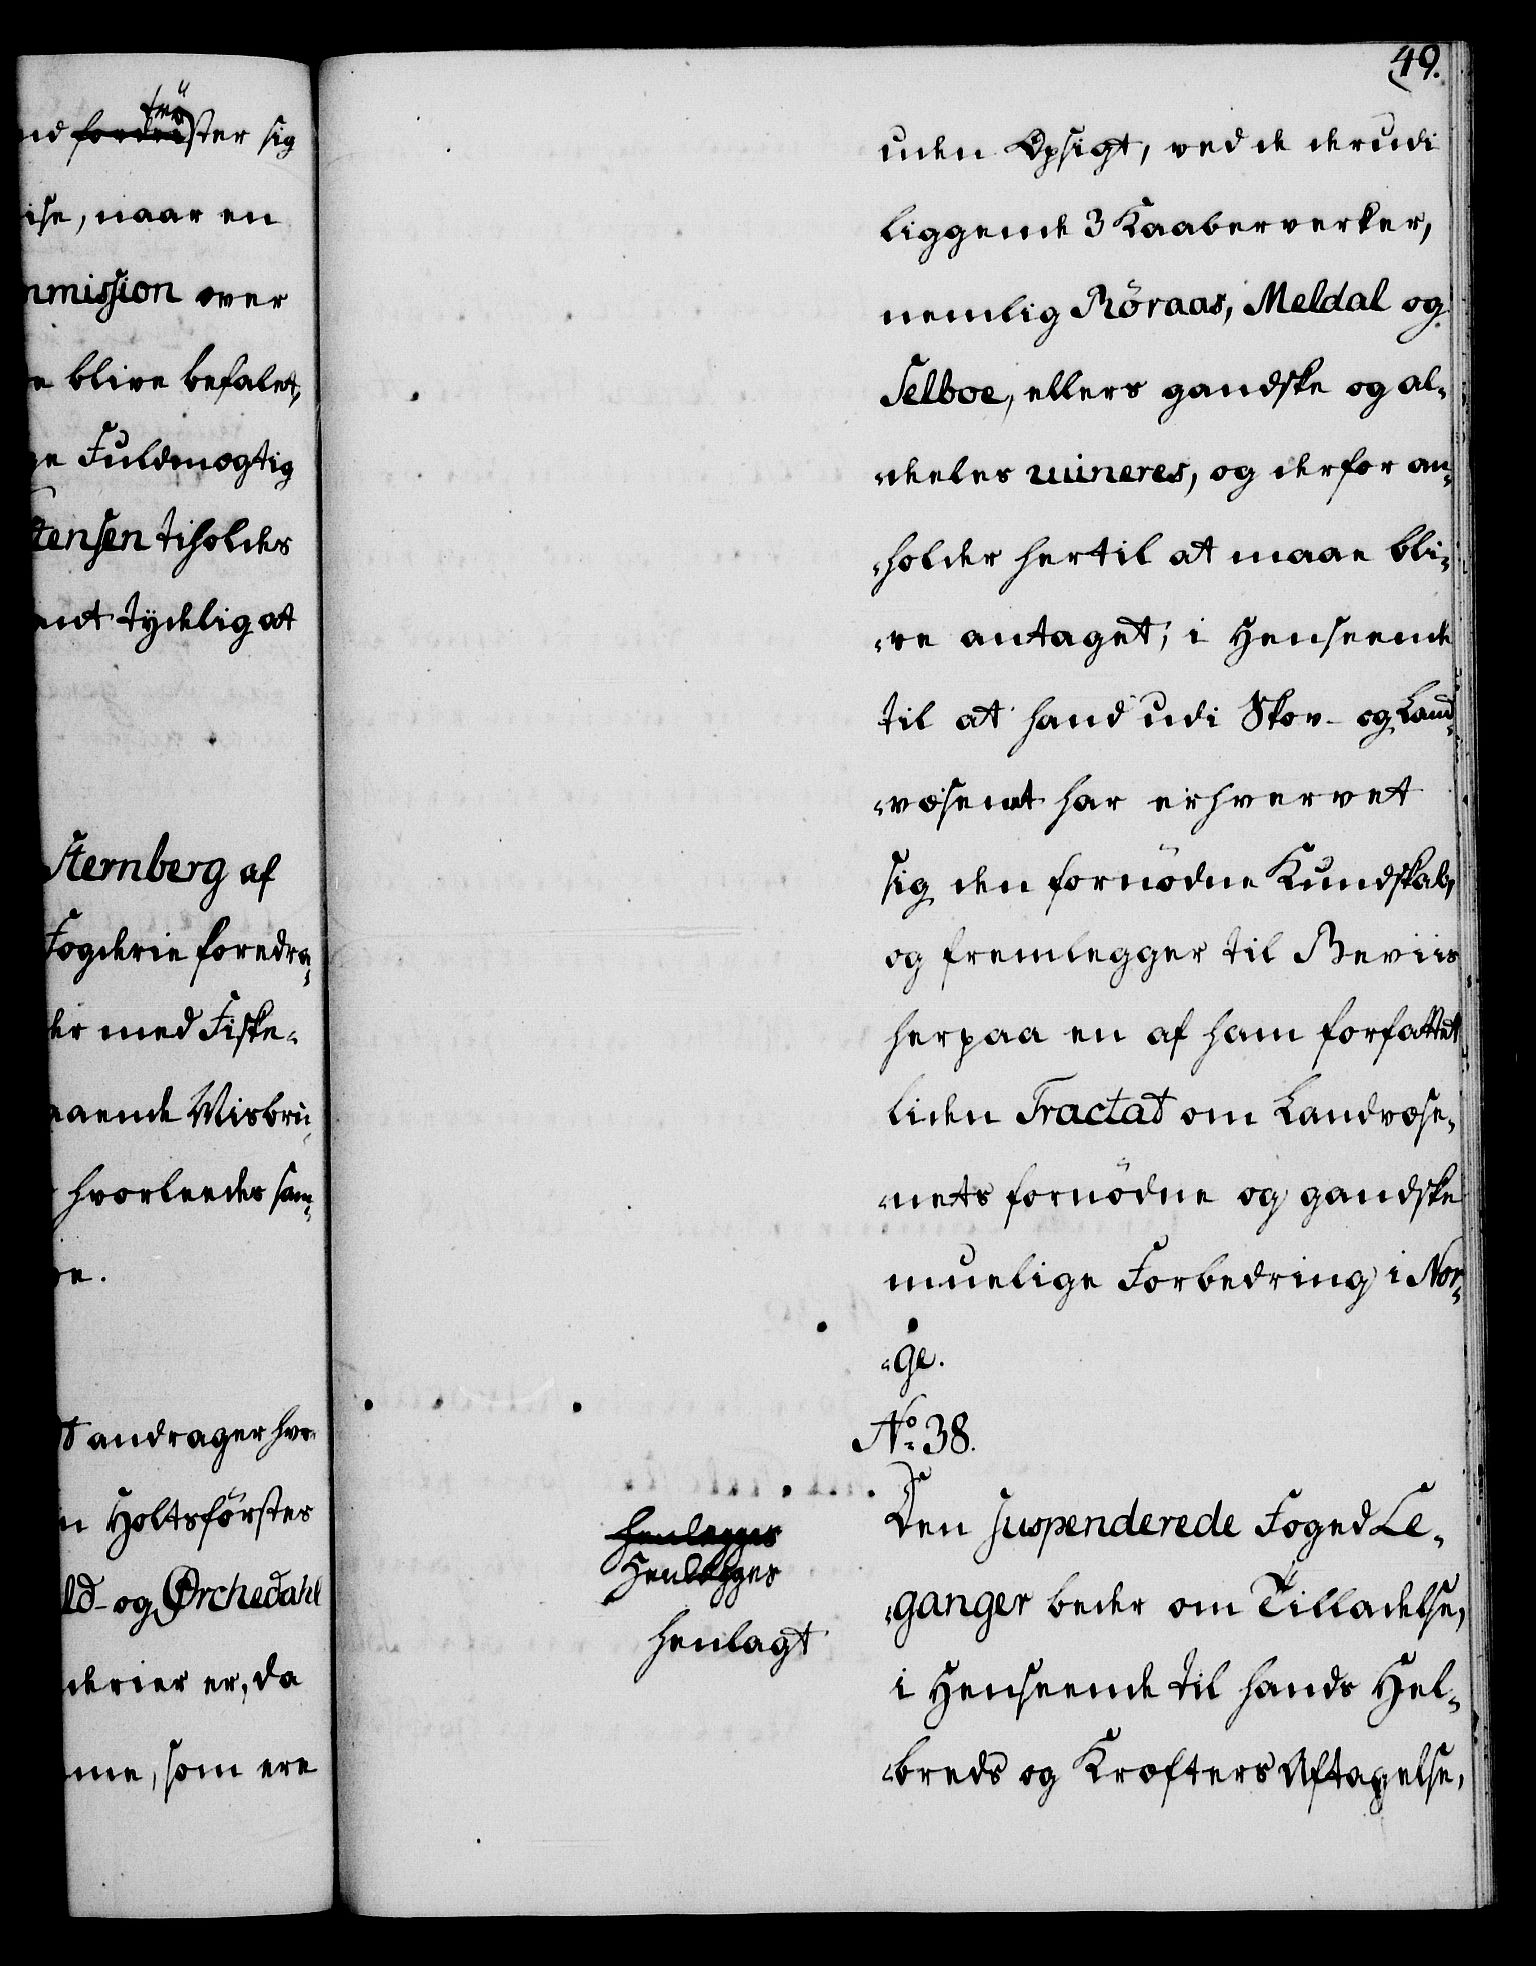 ster sig
ise, naar en
mmission over
blive befalet,
ge Fuldmægtig
tensen tilholdes
tydelig at
Sternberg af
Fogderie foredra-
der med Fiske-
aaende Misbru-
hvorleedes sam-
andrager hvor-
Holtzförstes
og Ørchedahl
derier er, da
me, som ere
49.
uden Opsigt, ved de derudi
liggende 3 Kaaberverker,
nemlig Röraas, Meldal og
Selboe, ellers gandske og al-
-deeles ruineres, og derfor an-
-holder hertil at maae bli-
-ve antaget; i Henseende
til at hand udi Skov- og Land-
-væsenet har erhvervet
sig den fornödne Kundskab,
og fremlegger til Beviis
herpaa en af ham forfattet
liden Tractat om Landvæse-
-nets fornödne og gandske
muelige Forbedring i Nor-
-ge.
No. 38.
Den suspenderede Foged Le-
-ganger beder om Tilladelse,
i Henseende til hands Hel-
-breds og Kræfters Aftagelse,
henlegges
Henlegges
henlagt